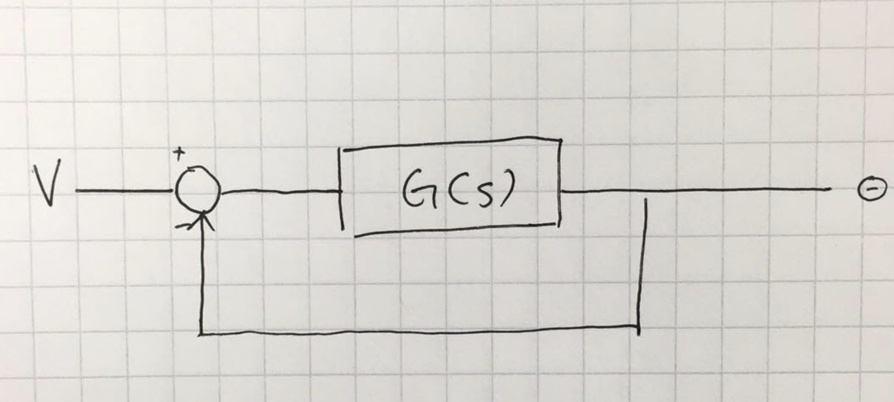 +
V G(s) Θ
-